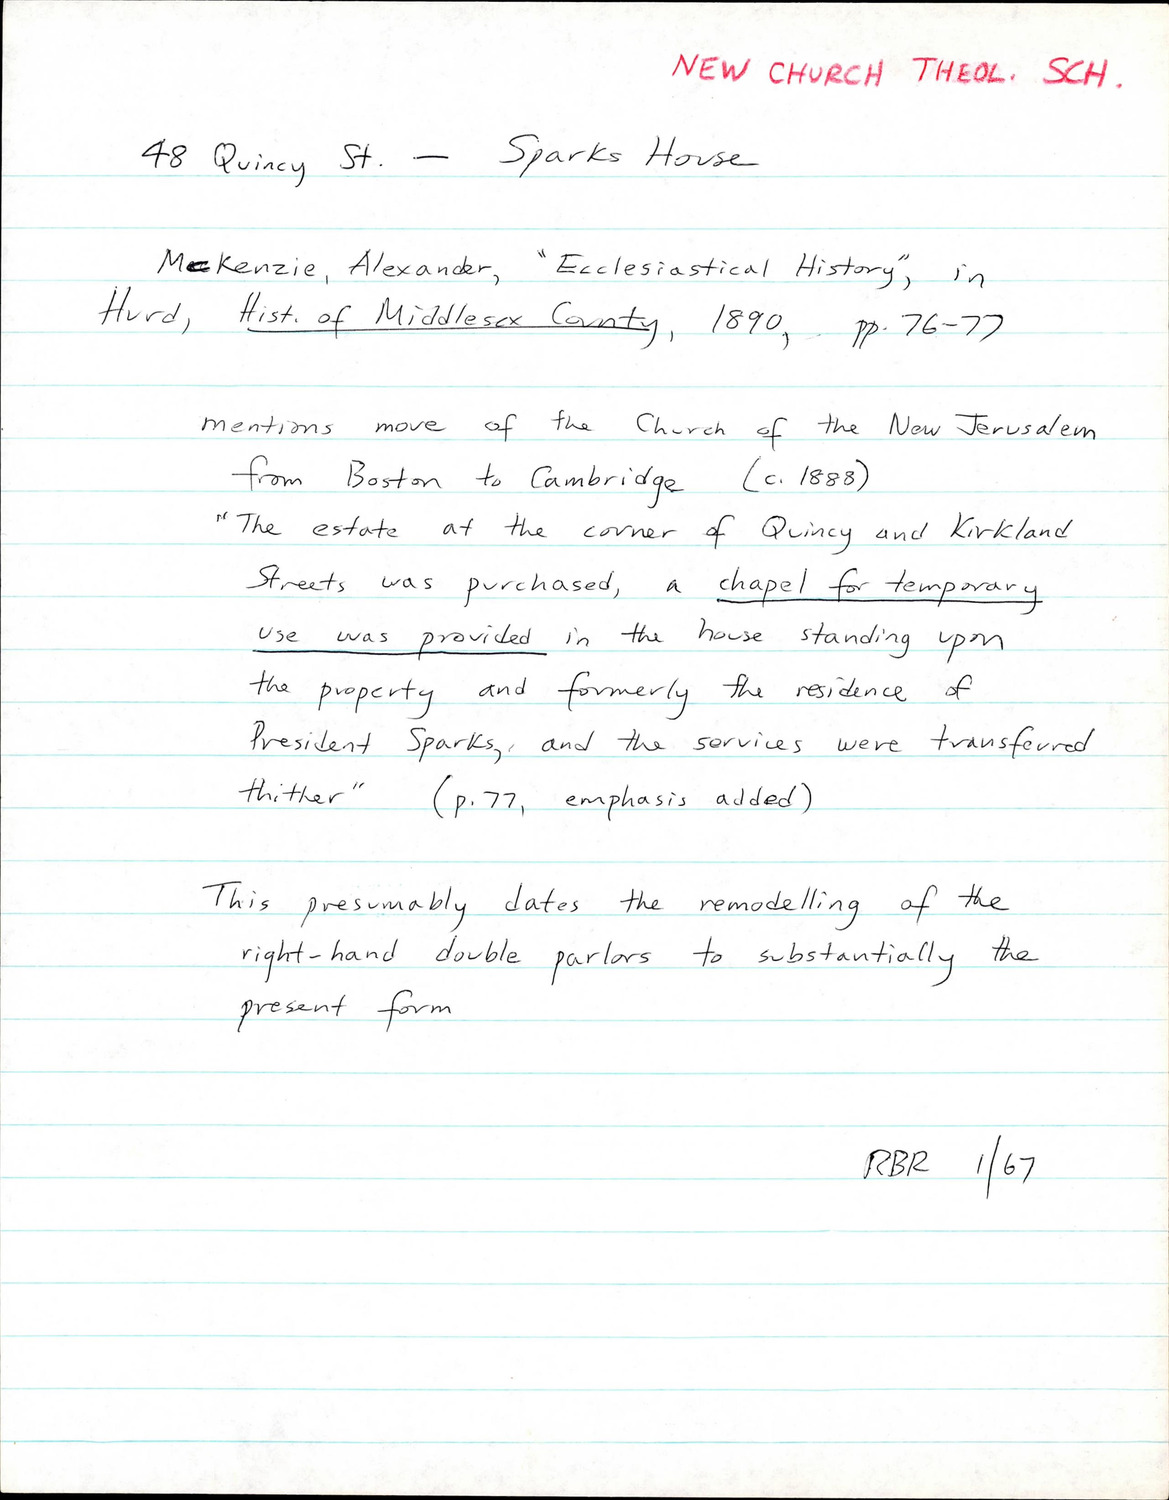 NEW CHURCH THEOL. SCH.
48 Quincy St. — Sparks House
McKenzie, Alexander, "Ecclesiastical History", in
Hurd, Hist. of Middlesex County, 1890, pp. 76-77
mentions move of the Church of the New Jerusalem
from Boston to Cambridge (c. 1888)
"The estate at the corner of Quincy and Kirkland
Streets was purchased, a chapel for temporary
use was provided in the house standing upon
the property and formerly the residence of
President Sparks, and the services were transferred
thither" (p. 77, emphasis added)
This presumably dates the remodelling of the
right-hand double parlors to substantially the
present form
RBR 1/67